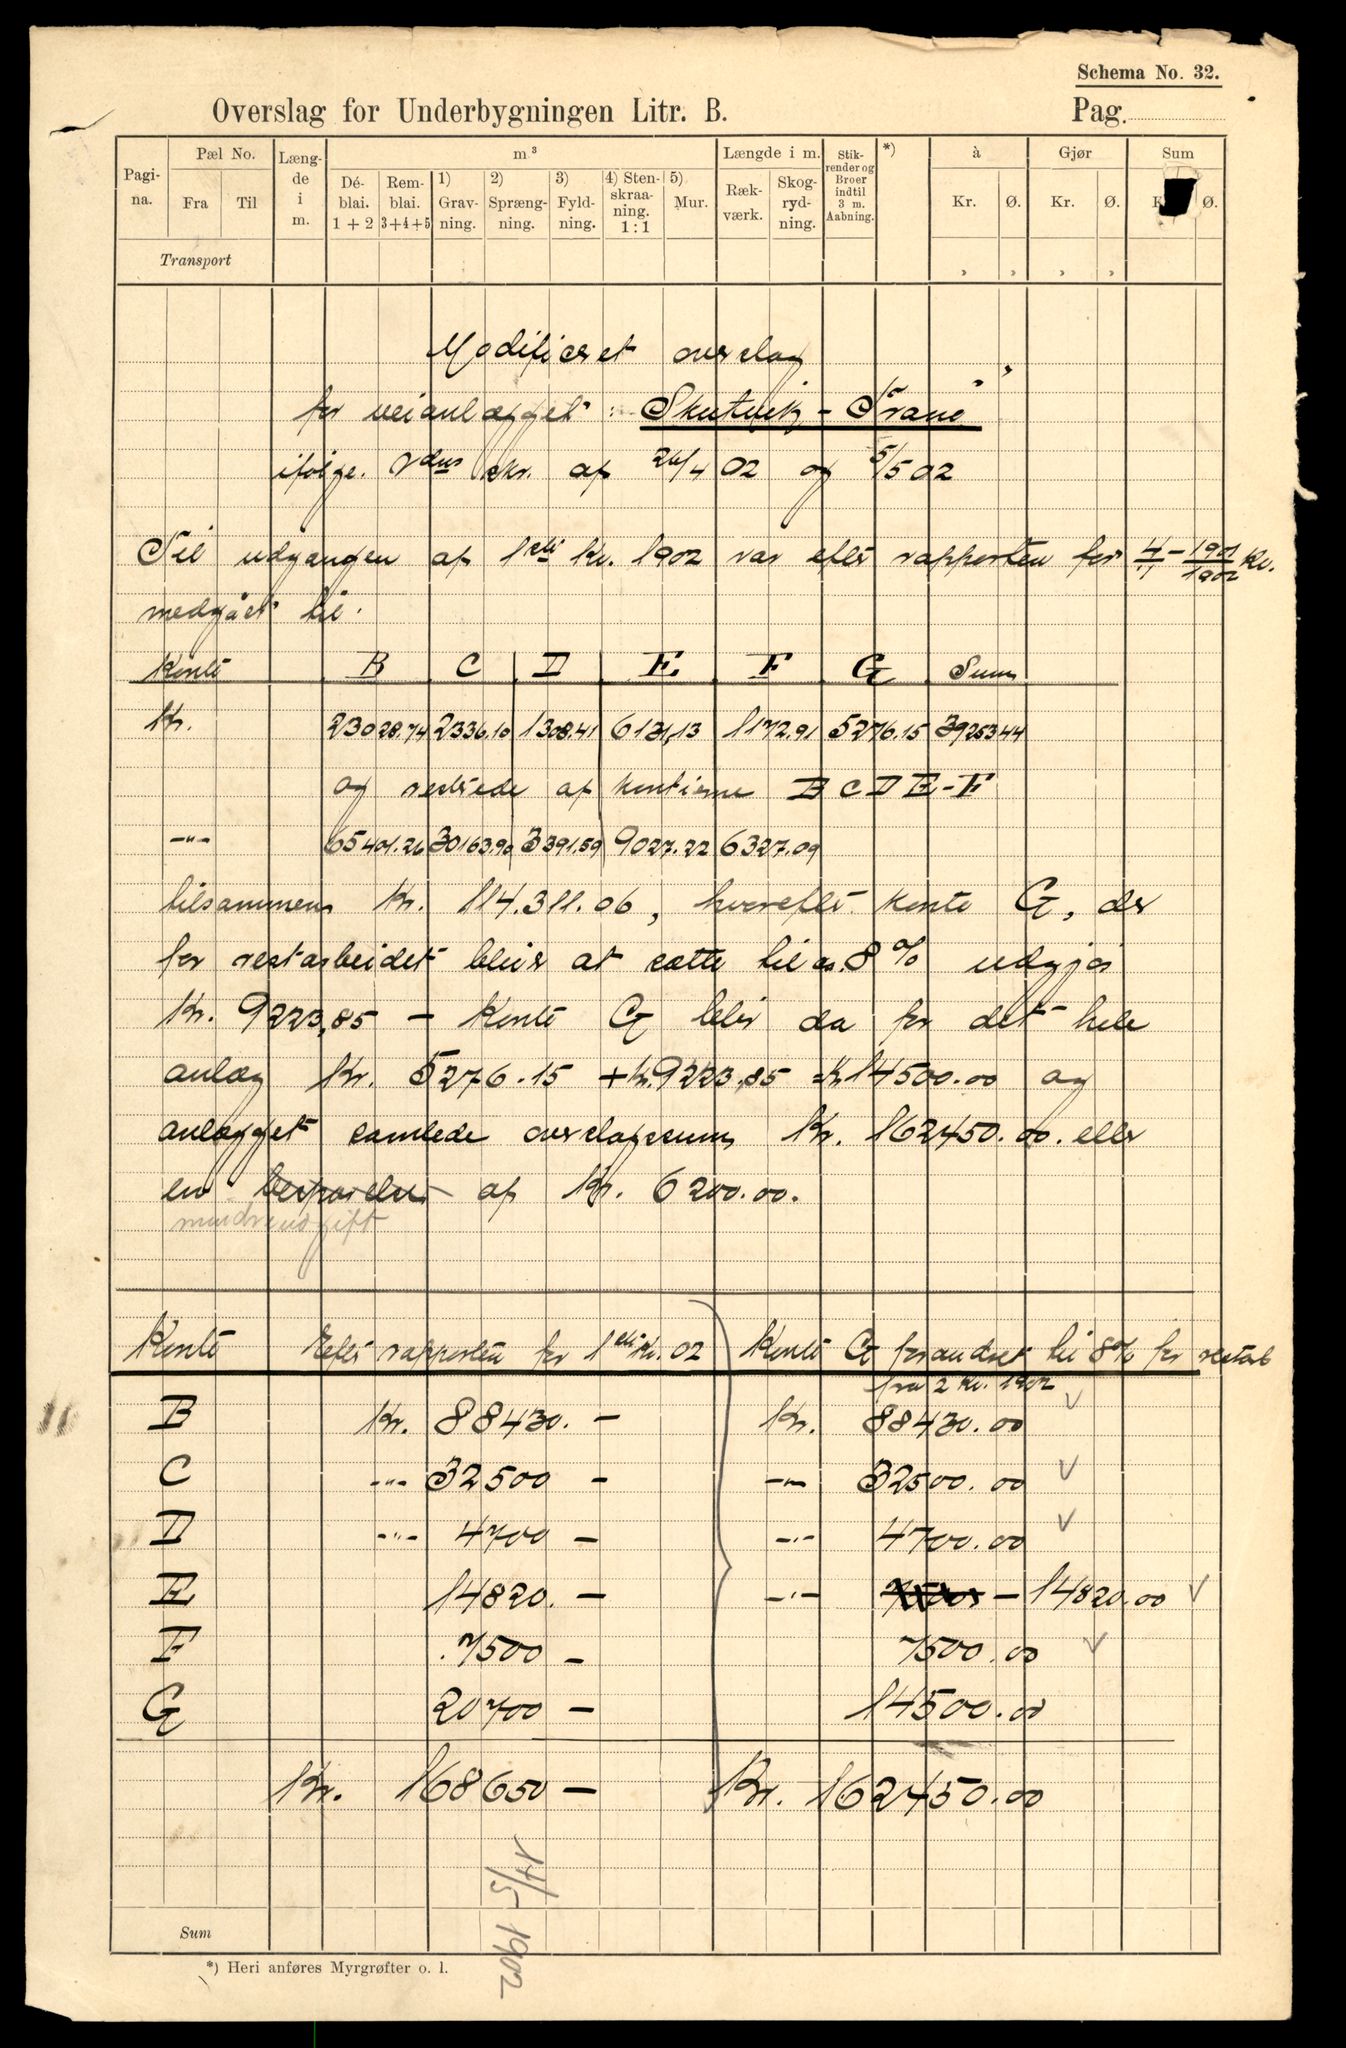 Schema No. 32.
Overslag for Underbygningen Litr. B. Pag.
Pagi-na. Pæl No. Fra Til Læng-de i m. m³ Dé-blai. 1+2 Rem-blai. 3+4+5 1) Grav-ning. 2) Spræng-ning. 3) Fyld-ning. 4) Sten-skraa-ning. 1:1 5) Mur. Længde i m. Ræk-værk. Skog-ryd-ning. Stik-render og Broer indtil 3 m. Aabning. *) à Kr. Ø. Gjør Kr. Ø. Sum Ø.
Transport
Modificeret overslag
for veianlægget: Skutvik - Tranø
ifølge. skr. af 26/4 02 og 5/5 02
Til udgangen af 1ste Kv. 1902 var efter rapporten for 1901/1902 kv.
medgået til:
Konto B C D E F G Sum
Kr. 23028.74 2336.10 1308.41 6131,13 1172.91 5276.15 39253.44
og restede af kontierne B C D E - F
-"- 65401.26 30163.90 3391.59 9027.22 6327.09
tilsammen Kr. 114.311.06, hvorefter konto G, der
for restarbeidet bliver at sætte til 8 % udgjør
Kr. 9223,85 - Konto G blir da for det hele
anlæg Kr. 5276.15 + Kr. 9223,85 = Kr 14500.00 og
anlægget samlede overslagssum Kr. 162450.00. eller
en besparelse af Kr. 6200.00.
mindreudgift
Konto Efter rapporten for 1ste Kv. 02 Konto G forandret til 8% for restarb
fra 2 Kv. 1902
B Kr. 88430. - Kr. 88430.00 V
C -"- 32500 - -"- 32500.00 V
D -"- 4700 - -"- 4700.00 V
E 14820. - -"- - 14820.00 V
F 7500 - 7500.00 V
G 20700 - 14500.00
Kr. 168650 - Kr. 162450.00
14/5 1902
Sum
*) Heri anføres Myrgrøfter o. l.